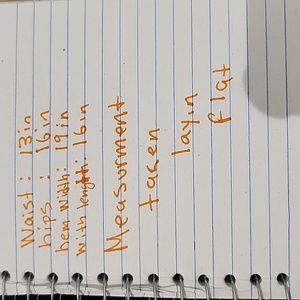 Waist: 13in
hips : 16in
hem width: 19in
with lenght: 16in
Measurment
taken
layin
flat